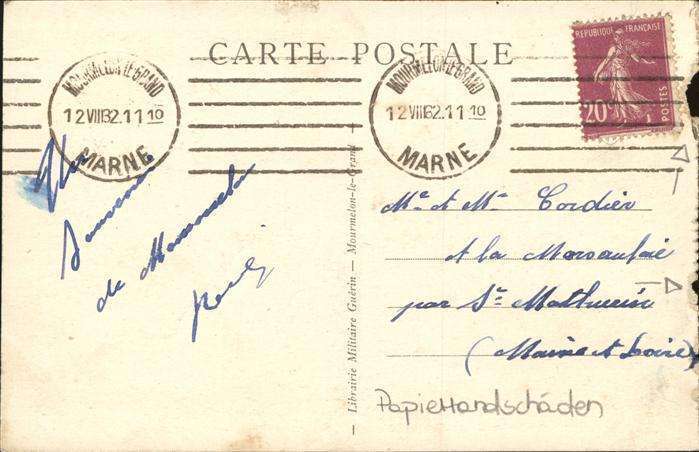 CARTE POSTALE
RÉPUBLIQUE FRANÇAISE
20c
POSTES
MOURMELON-LE-GRAND
12 VIII 32. 11 10
MARNE
MOURMELON-LE-GRAND
12 VIII 32. 11 10
MARNE
Souvenir
de Mourmelon
Librairie Militaire Guérin — Mourmelon-le-Grand —
Me et Mr Cordier
à la
par St Mathurin
(Maine et Loire)
Papierrandschäden